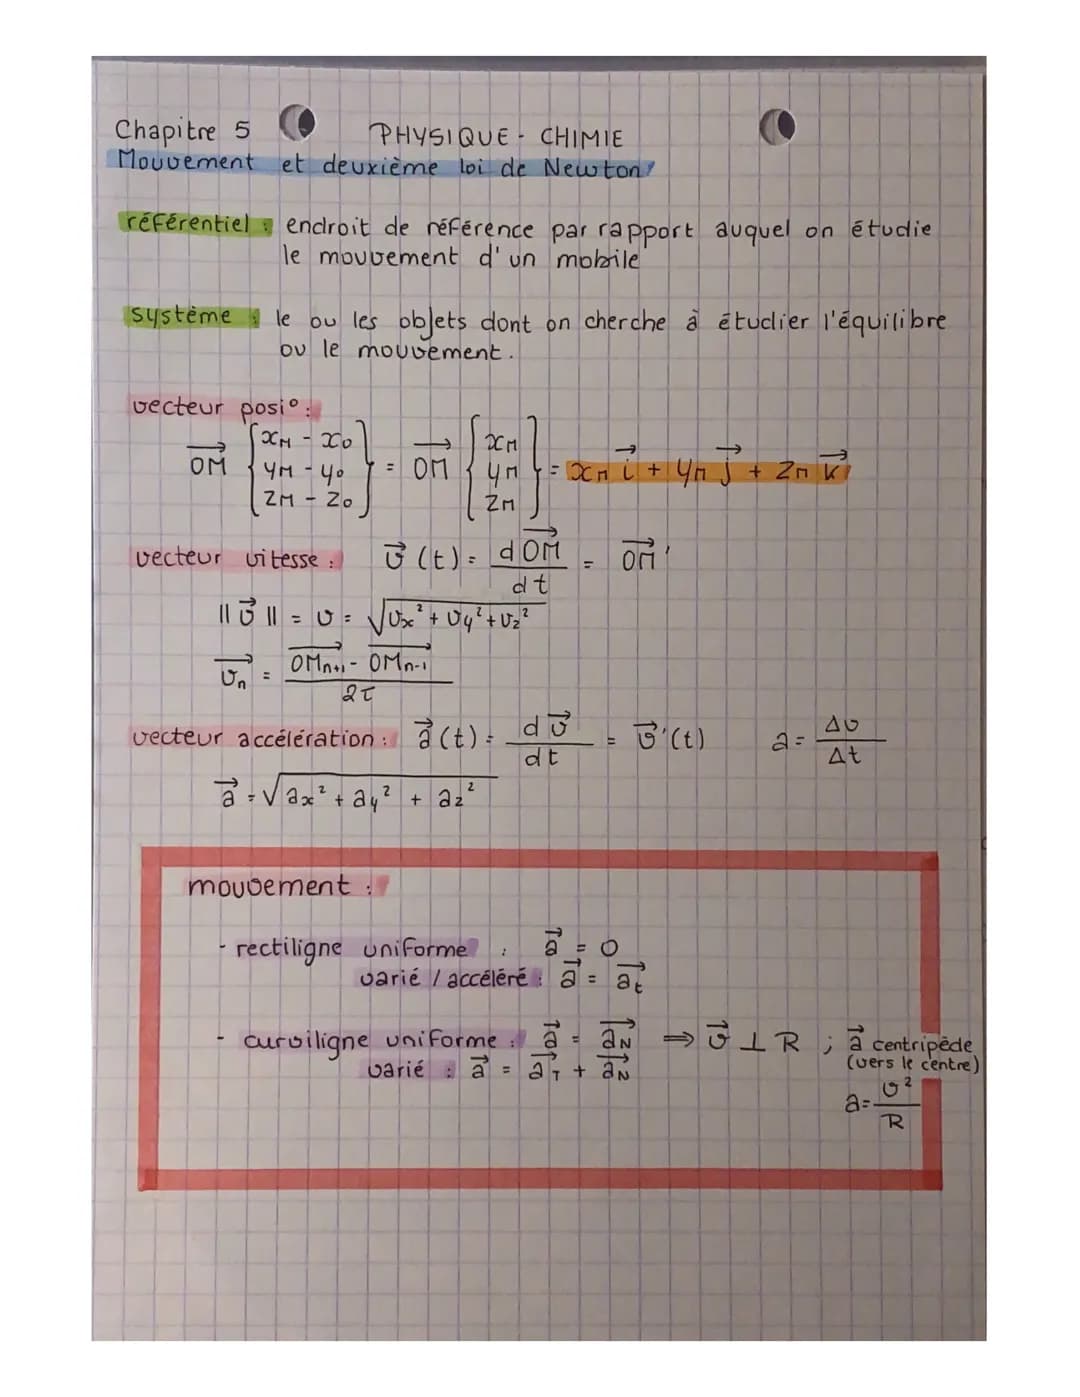 Chapitre 5 PHYSIQUE - CHIMIE
Mouvement et deuxième loi de Newton
référentiel : endroit de référence par rapport auquel on étudie
le mouvement d'un mobile
système : le ou les objets dont on cherche à étudier l'équilibre
ou le mouvement.
vecteur posi° :
$\overrightarrow{OM} \begin{Bmatrix} x_M - x_0 \\ y_M - y_0 \\ z_M - z_0 \end{Bmatrix} = \overrightarrow{OM} \begin{Bmatrix} x_M \\ y_M \\ z_M \end{Bmatrix} = x_M \vec{i} + y_M \vec{j} + z_M \vec{k}$
vecteur vitesse : $\vec{v}(t) = \frac{d\overrightarrow{OM}}{dt} = \overrightarrow{OM}'$
$||\vec{v}|| = v = \sqrt{v_x^2 + v_y^2 + v_z^2}$
$\overrightarrow{v_n} = \frac{\overrightarrow{OM_{n+1}} - \overrightarrow{OM_{n-1}}}{2\tau}$
vecteur accélération : $\vec{a}(t) = \frac{d\vec{v}}{dt} = \vec{v}'(t)$ $a = \frac{\Delta v}{\Delta t}$
$\vec{a} = \sqrt{a_x^2 + a_y^2 + a_z^2}$
mouvement :
- rectiligne uniforme : $\vec{a} = 0$
varié / accéléré : $\vec{a} = \overrightarrow{a_t}$
- curviligne uniforme : $\vec{a} = \overrightarrow{a_N}$ ⟹ $\vec{v} \perp R$ ; $\vec{a}$ centripède
varié : $\vec{a} = \overrightarrow{a_T} + \overrightarrow{a_N}$ (vers le centre)
$a = \frac{v^2}{R}$